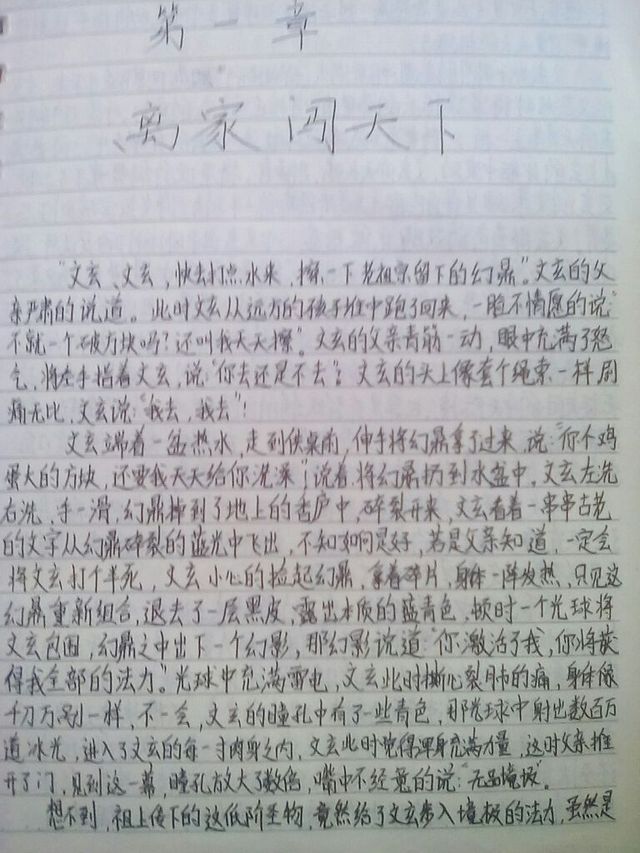 第一章
离家闯天下
"文玄、文玄,快去打点水来,擦一下老祖宗留下的幻鼎"。文玄的父
亲严肃的说道。此时文玄从远方的孩子堆中跑了回来,一脸不情愿的说"
不就一个破方块吗?还叫我天天擦"。文玄的父亲青筋一动,眼中充满了怒
气,将左手指着文玄,说"你去还是不去"?文玄的头上像套个绳索一样剧
痛无比,文玄说"我去,我去"!
文玄端着一盆热水,走到供桌前,伸手将幻鼎拿了过来,说:"你个鸡
蛋大的方块,还要我天天给你洗澡"!说着,将幻鼎扔到水盆中。文玄左洗
右洗,手一滑,幻鼎掉到了地上的香炉中,碎裂开来,文玄看着一串串古老
的文字从幻鼎碎裂的蓝光中飞出,不知如何是好,若是父亲知道,一定会
将文玄打个半死,文玄小心的捡起幻鼎,拿着碎片,身体一阵发热,只见这
幻鼎重新组合,退去了一层黑皮,露出本质的蓝青色,顿时一个光球将
文玄包围,幻鼎之中出下一个幻影,那幻影说道"你激活了我,你将获
得我全部的法力。"光球中充满雷电,文玄此时撕心裂肺的痛,身体像
千刀万剐一样,不一会,文玄的瞳孔中有了一些青色,那光球中射出数百万
道冰光,进入了文玄的每一寸肉身之内,文玄此时觉得浑身充满力量,这时父亲推
开了门,见到这一幕,瞳孔放大了数倍,嘴中不经意的说:"无品境极"。
想不到,祖上传下的这低阶圣物,竟然给了文玄步入境极的法力,虽然是